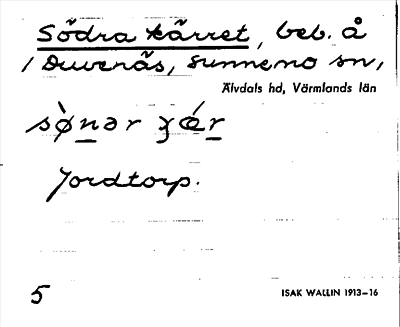 Södra kärret, beb. å
/ Duvenäs, Sunnemo sn,
Älvdals hd, Värmlands län
sø̀nər ɣǽr
Jordtorp.
5
ISAK WALLIN 1913–16